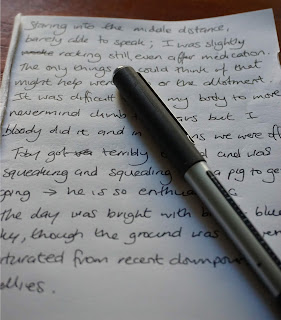 Staring into the middle distance,
barely able to speak; I was slightly
rocking still, even after medication.
The only things I could think of that
might help were or the allotment.
It was difficult my body to move
nevermind climb but I
bloody did it and in we were off.
Toby got terribly and was
squeaking and squealing a pig to get
going → he is so
The day was bright with blue
ky, though the ground was
turated from recent downpour
ollies.